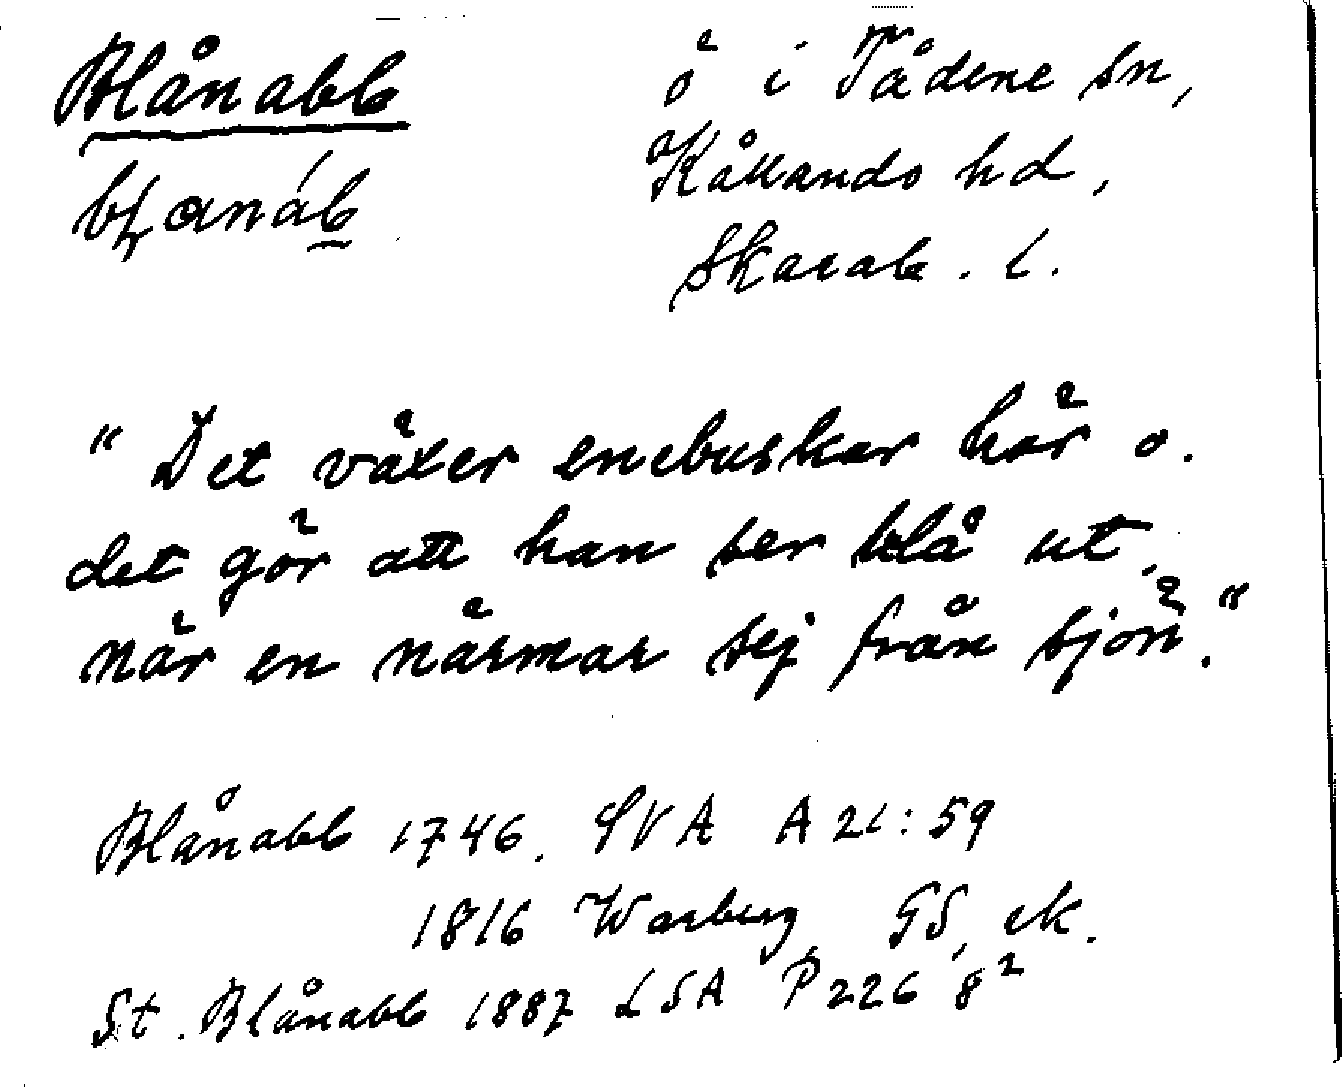 Blånabb
ö i Tådene sn,
bɫanáb
Kållands hd,
Skarab. l.
"Det växer enebuskar här o.
det gör att han ser blå ut,
när en närmar sej från sjön."
Blånabb 1746. SVA A 21:59
1816 Warberg GS, ek.
St. Blånabb 1887 LSA P226 8²